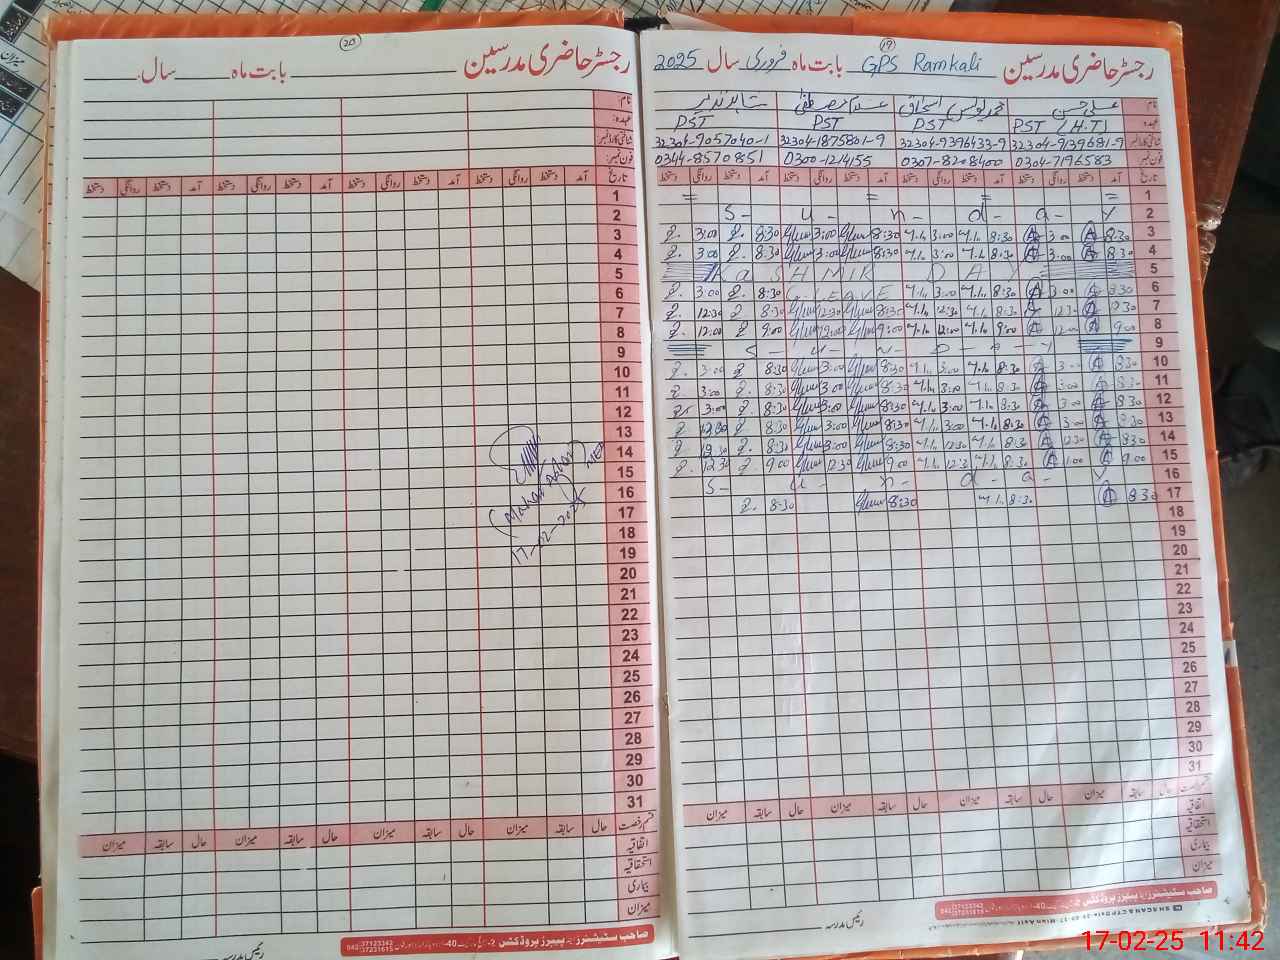 20
رجسٹر حاضری مدرسین بابت ماہ سال
نام
عہدہ
شناختی کارڈ نمبر
فون نمبر
تاریخ آمد دستخط روانگی دستخط آمد دستخط روانگی دستخط آمد دستخط روانگی دستخط آمد دستخط روانگی دستخط
1
2
3
4
5
6
7
8
9
10
11
12
13
14
15
16
17
18
19
20
21
22
23
24
25
26
27
28
29
30
31
قسم رخصت حال سابقہ میزان حال سابقہ میزان حال سابقہ میزان حال سابقہ میزان
اتفاقیہ
استحقاقیہ
بیماری
میزان
17-02-2025
رئیس مدرسہ
19
رجسٹر حاضری مدرسین GPS Ramkali بابت ماہ فروری سال 2025
نام علی حسن محمد یونس اسحاق غلام مصطفیٰ شاہد نذیر
عہدہ PST (H.T) PST PST PST
شناختی کارڈ نمبر 32304-9139681-9 32304-9396433-9 32304-1875801-9 32304-9057040-1
فون نمبر 0304-7196583 0307-8208400 0300-1214155 0344-8570851
تاریخ آمد دستخط روانگی دستخط آمد دستخط روانگی دستخط آمد دستخط روانگی دستخط آمد دستخط روانگی دستخط
1 = = = =
2 S - u - n - d - a - y
3 8:30 3:00 8:30 3:00 8:30 3:00 8:30 3:00
4 8:30 3:00 8:30 3:00 8:30 3:00 8:30 3:00
5 KaSHMIR DAY
6 8:30 3:00 8:30 3:00 C.LEAVE 8:30 3:00
7 8:30 12:30 8:30 12:30 8:30 12:30 8:30 12:30
8 9:00 12:00 9:00 12:00 9:00 12:00 9:00 12:00
9 S - U - N - D - A - Y
10 8:30 3:00 8:30 3:00 8:30 3:00 8:30 3:00
11 8:30 3:00 8:30 3:00 8:30 3:00 8:30 3:00
12 8:30 3:00 8:30 3:00 8:30 3:00 8:30 3:00
13 8:30 3:00 8:30 3:00 8:30 3:00 8:30
14 8:30 12:30 8:30 12:30 8:30 3:00 8:30 12:30
15 9:00 1:00 8:30 12:30 9:00 12:30 9:00 12:30
16 S - u - n - d - a - y
17 8:30 8:30 8:30 8:30
18
19
20
21
22
23
24
25
26
27
28
29
30
31
قسم رخصت حال سابقہ میزان حال سابقہ میزان حال سابقہ میزان حال سابقہ میزان
اتفاقیہ
استحقاقیہ
بیماری
میزان
رئیس مدرسہ
17-02-25 11:42